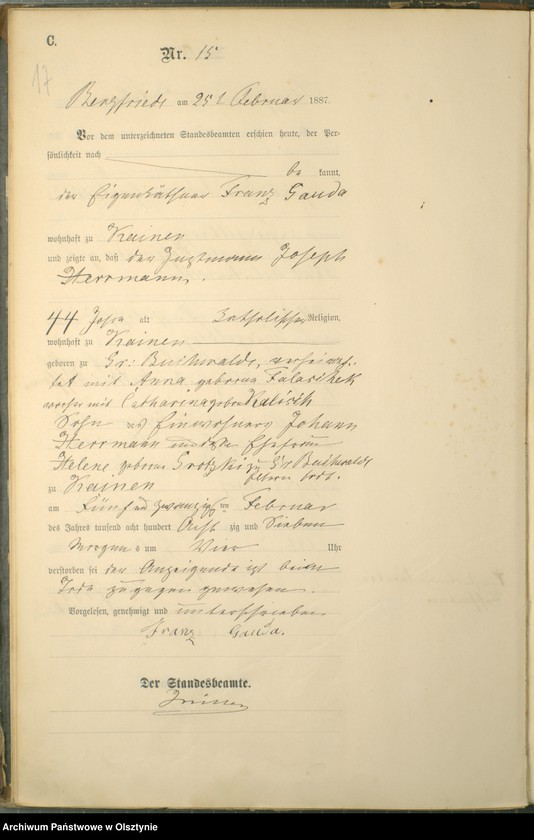 C.
Nr. 15
17
Bergfriede am 25t Februar 1887.
Vor dem unterzeichneten Standesbeamten erschien heute, der Per-
sönlichkeit nach
be kannt,
der Eigenkäthner Franz Gauda
wohnhaft zu Kainen
und zeigte an, daß der Instmann Joseph
Herrmann.
44 Jahre alt Katholischer Religion,
wohnhaft zu Kainen
geboren zu Gr: Buchwalde, verheirat-
tet mit Anna geborene Falaschek
vorher mit Catharina geborne Kalisch
Sohn des Einwohners Johann
Herrmann und dessen Ehefrau
Helene geborene Grotzki zu Gr Buchwalde
zu Kainen
am Fünf und zwanzigsten Februar
des Jahres tausend acht hundert Acht zig und Sieben
Morgens um Vier Uhr
verstorben sei der Anzeigende ist beim
Tode zugegen gewesen.
Vorgelesen, genehmigt und unterschrieben
Franz Gauda.
Der Standesbeamte.
Archiwum Państwowe w Olsztynie